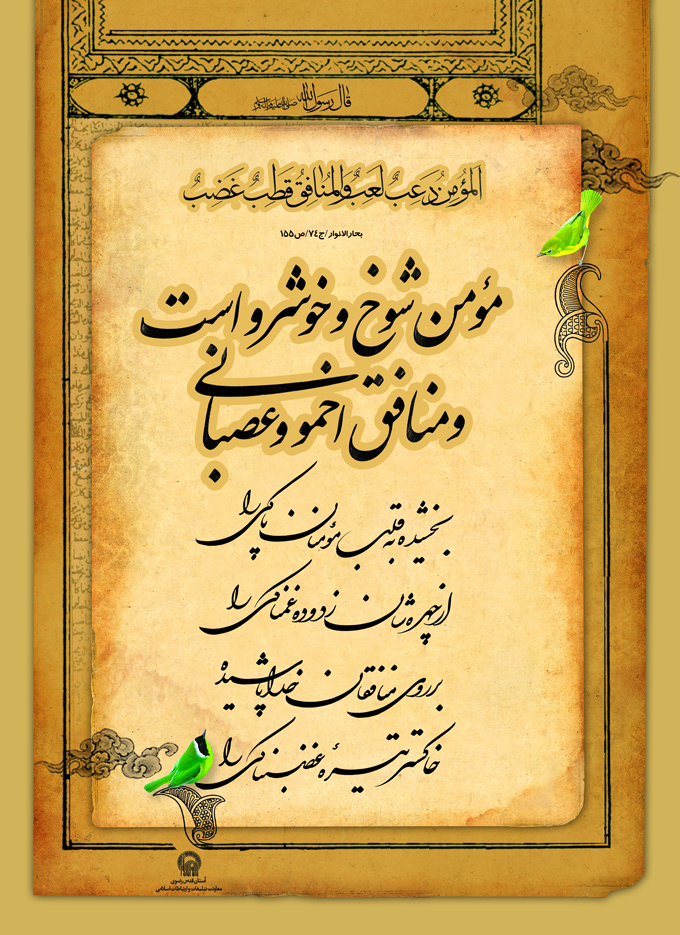 قال رسول الله صلی الله علیه و آله
المُؤمِنُ دَعِبٌ لَعِبٌ وَالمُنافِقُ قَطِبٌ غَضِبٌ
بحارالانوار/ج۷۴/ص۱۵۵
مؤمن شوخ و خوشرو است
و منافق اخمو و عصبانی
بخشیده به قلب مؤمنان پاکی را
از چهره‌شان زدوده غمناکی را
بر روی منافقان خدا پاشیده
خاکستر تیرهٔ غضبناکی را
آستان قدس رضوی
معاونت تبلیغات و ارتباطات اسلامی